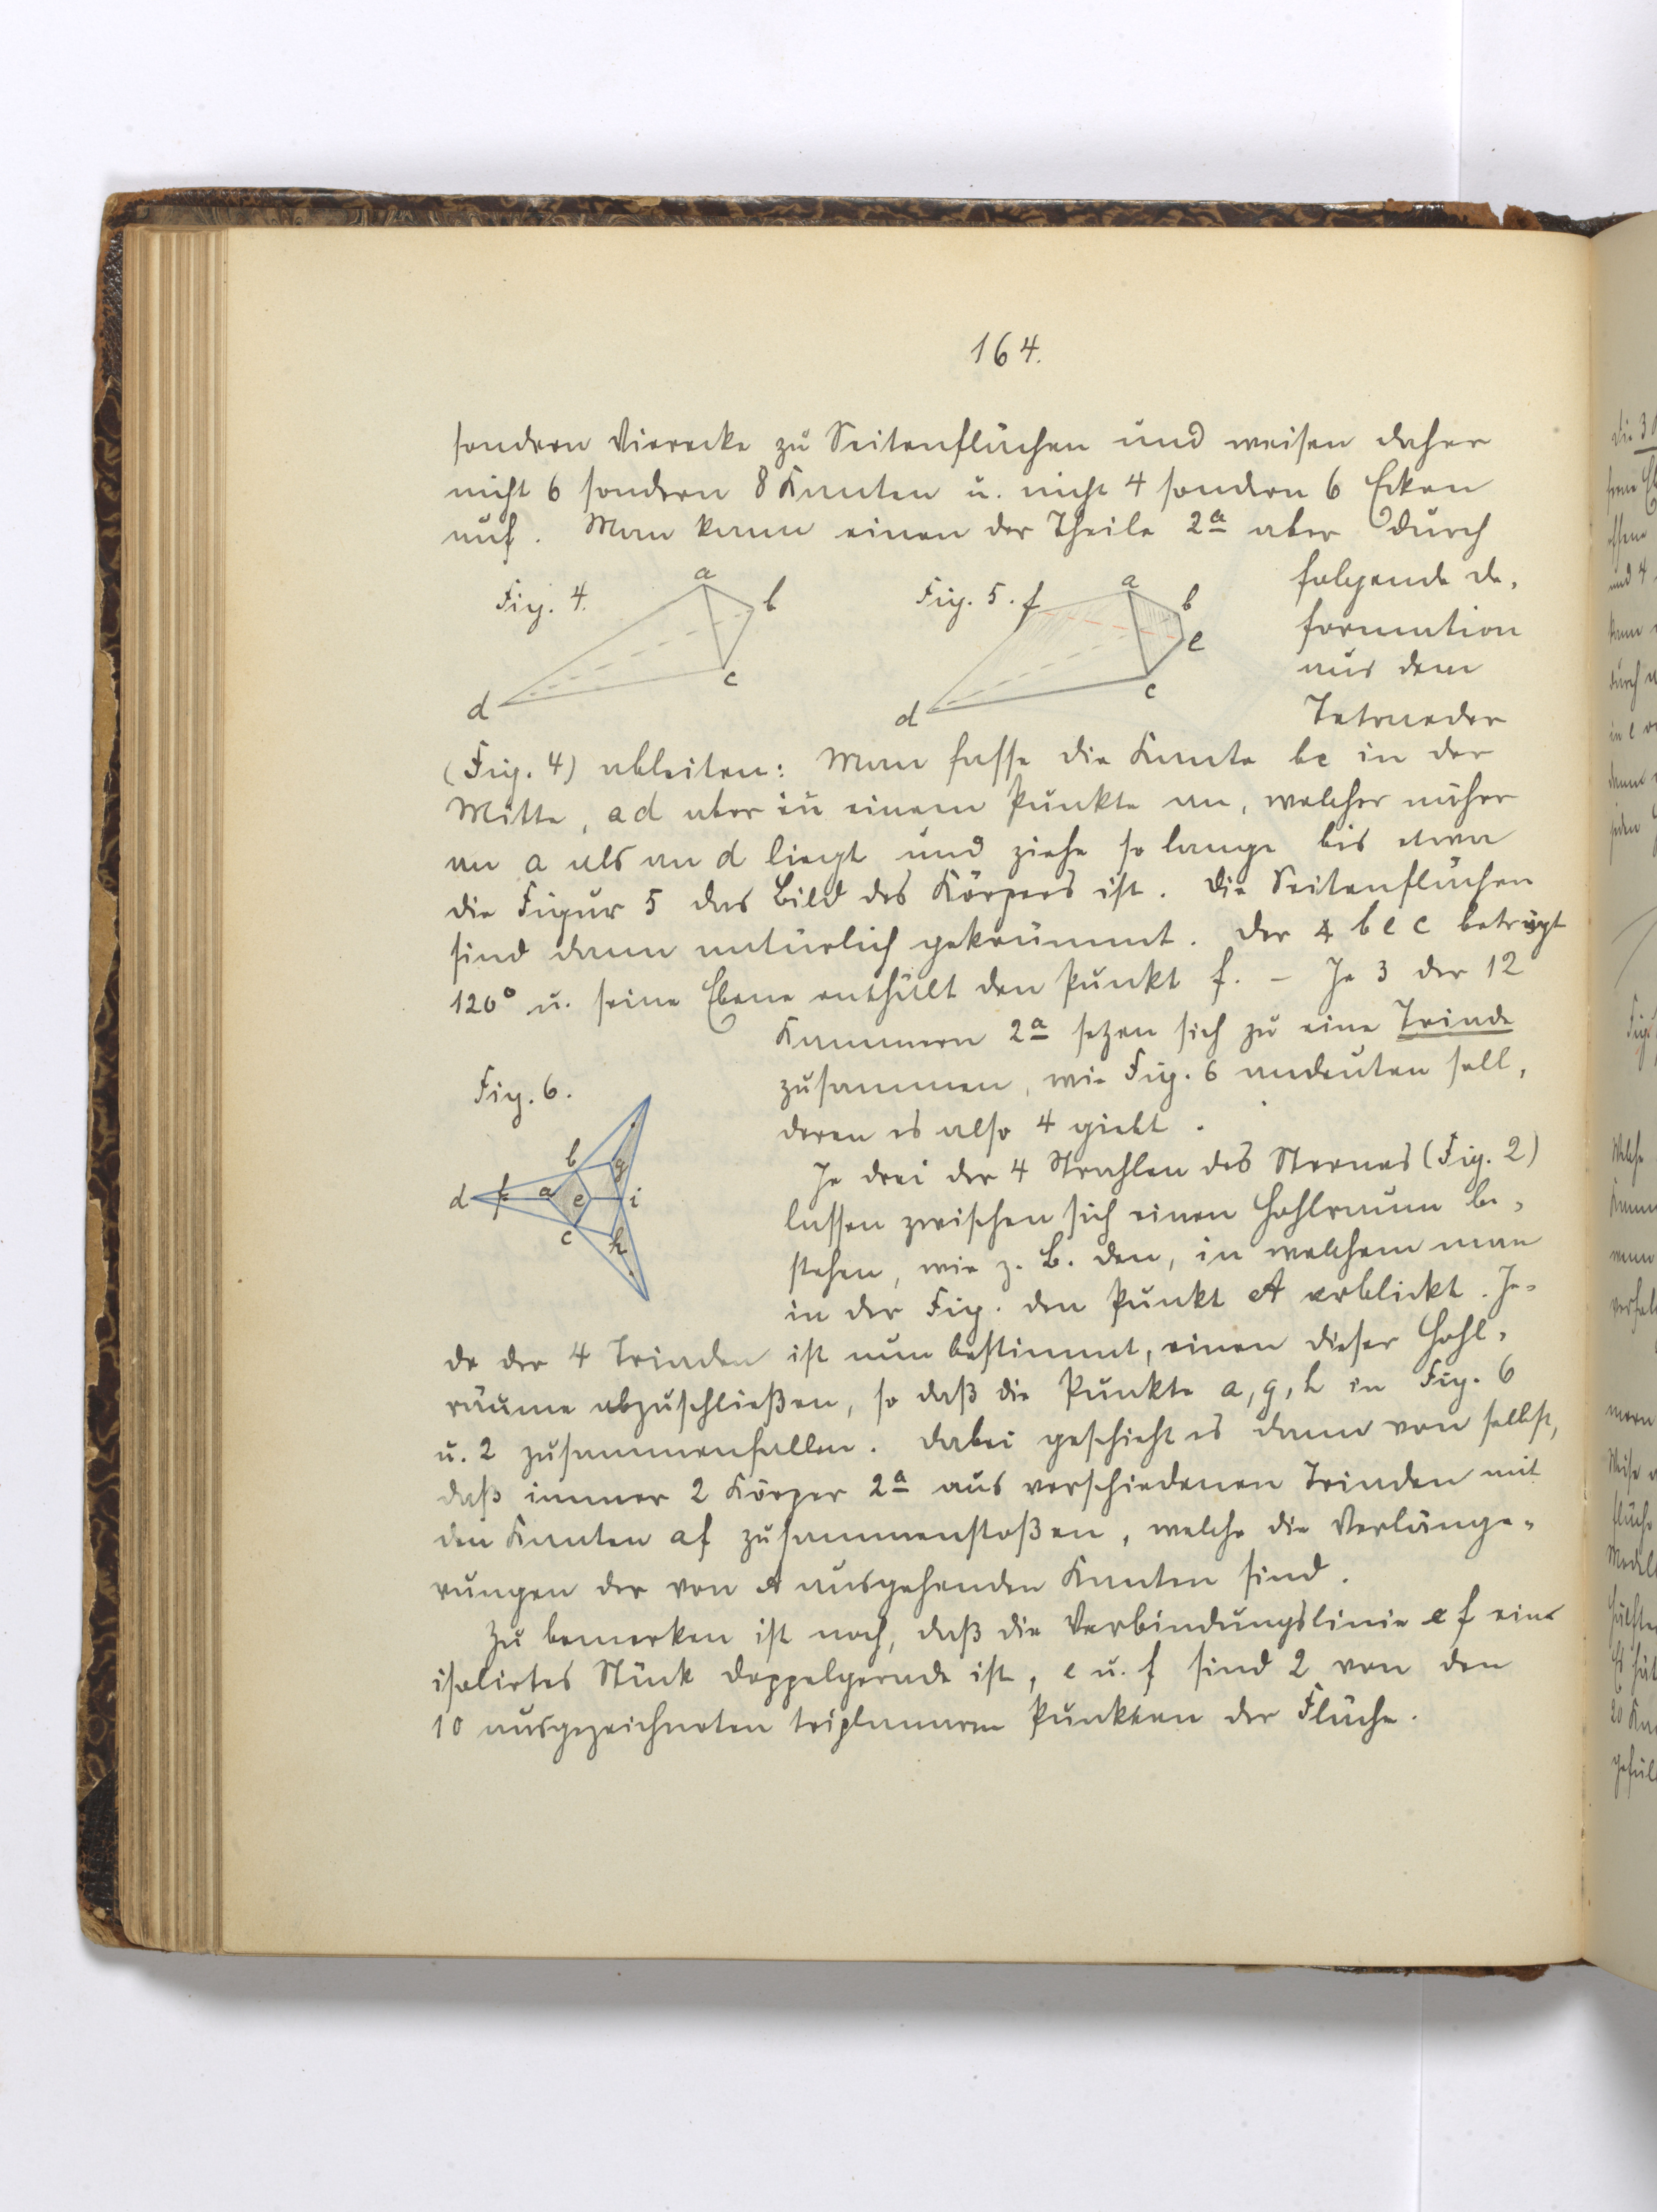 164.
sondern Vierecke zu Seitenflächen und weisen daher
nicht 6 sondern 8 Kanten u. nicht 4 sondern 6 Ecken
auf. Man kann einen der Theile 2a aber durch
Fig. 4.
a
b
c
d
Fig. 5.
f
a
b
e
c
d
folgende De-
formation
aus dem
Tetraeder
(Fig. 4) ableiten: Man fasse die Kante bc in der
Mitte, ad aber in einem Punkte an, welcher näher
an a als an d liegt und ziehe so lange bis etwa
die Figur 5 das Bild des Körpers ist. Die Seitenflächen
sind dann natürlich gekrümmt. Der ∢ bec beträgt
120° u. seine Ebene enthält den Punkt f. – Je 3 der 12
Kammern 2a setzen sich zu eine Trinde
zusammen, wie Fig. 6 andeuten soll,
deren es also 4 giebt.
Fig. 6.
b
g
d
f
a
e
i
c
h
Je drei der 4 Strahlen des Sternes (Fig. 2)
lassen zwischen sich einen Hohlraum be-
stehen, wie z. B. den, in welchem man
in der Fig. den Punkt A erblickt. Je-
de der 4 Trinden ist nun bestimmt, einen dieser Hohl-
räume abzuschließen, so daß die Punkte a, g, h in Fig. 6
u. 2 zusammenfallen. Dabei geschieht es dann von selbst,
daß immer 2 Körper 2a aus verschiedenen Trinden mit
den Kanten af zusammenstoßen, welche die Verlänge-
rungen der von A ausgehenden Kanten sind.
Zu bemerken ist noch, daß die Verbindungslinie ef eine
isolirtes Stück Doppelgerade ist, e u. f sind 2 von den
10 ausgezeichneten triplanaren Punkten der Fläche.